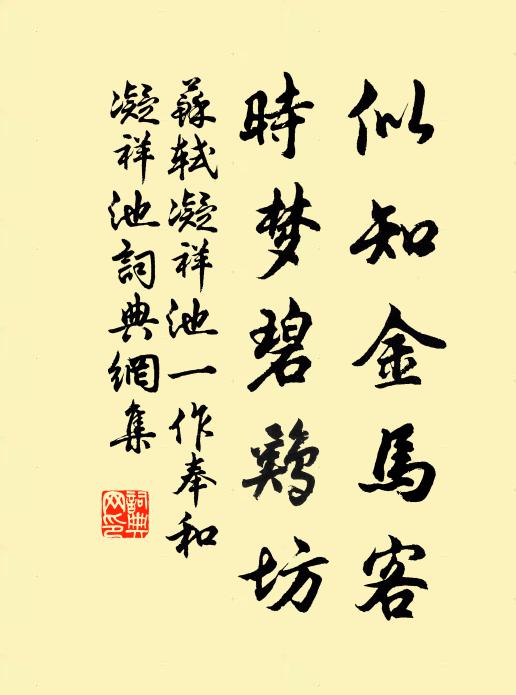 似知金馬客
時梦碧鷄坊
蘇軾凝祥池一作奉和
凝祥池詞典網集
詞典
网印